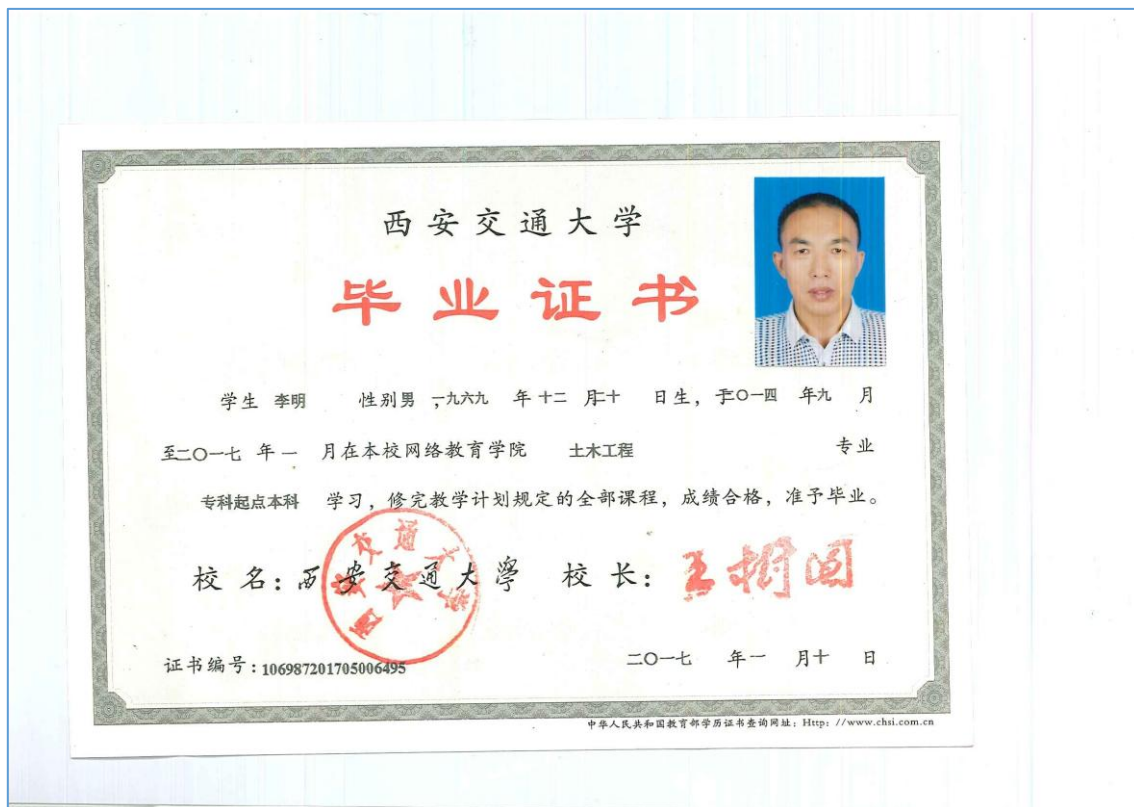 西安交通大学
毕业证书
学生 李明 性别男，一九六九 年十二 月二十 日生，于二〇一四 年九 月
至二〇一七 年一 月在本校网络教育学院 土木工程 专业
专科起点本科 学习，修完教学计划规定的全部课程，成绩合格，准予毕业。
校 名：西安交通大學 校 长：王树国
西安交通大学
证书编号：106987201705006495 二〇一七 年一 月十 日
中华人民共和国教育部学历证书查询网址：Http：//www.chsi.com.cn